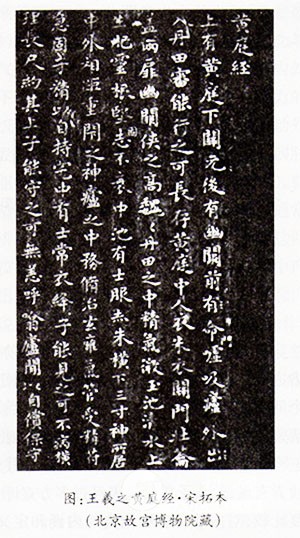 黄庭經
上有黄庭下關元後有幽闕前有命噓吸廬外出
入丹田審能行之可長存黄庭中人衣朱衣關門壯籥
蓋兩扉幽闕俠之高巍巍丹田之中精氣微玉池清水上
生肥靈根堅志不衰中池有士服赤朱橫下三寸神所居
中外相距重閉之神廬之中務脩治玄癰氣管受精符
急固子精以自持宅中有士常衣絳子能見之可不病橫
理長尺約其上子能守之可無恙呼噏廬閒以自償保守
图:王羲之黄庭经·宋拓本
(北京故宫博物院藏)